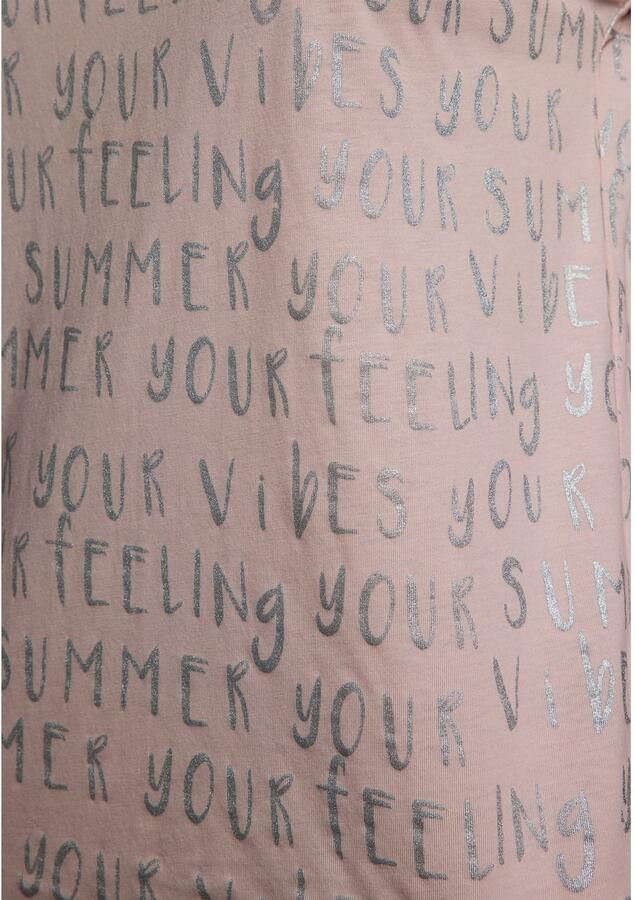 UR FEELING YOUR SUMM
R YOUR ViBES YOUR
UR fEELINg YOUR SUM
SUMMER YOUR Vib
MMER YOUR fEELINg
R YOUR ViBES YOUR
R fEELINg YOUR SUM
SUMMER YOUR Vib
MER YOUR fEELINg
YOUR ViBES